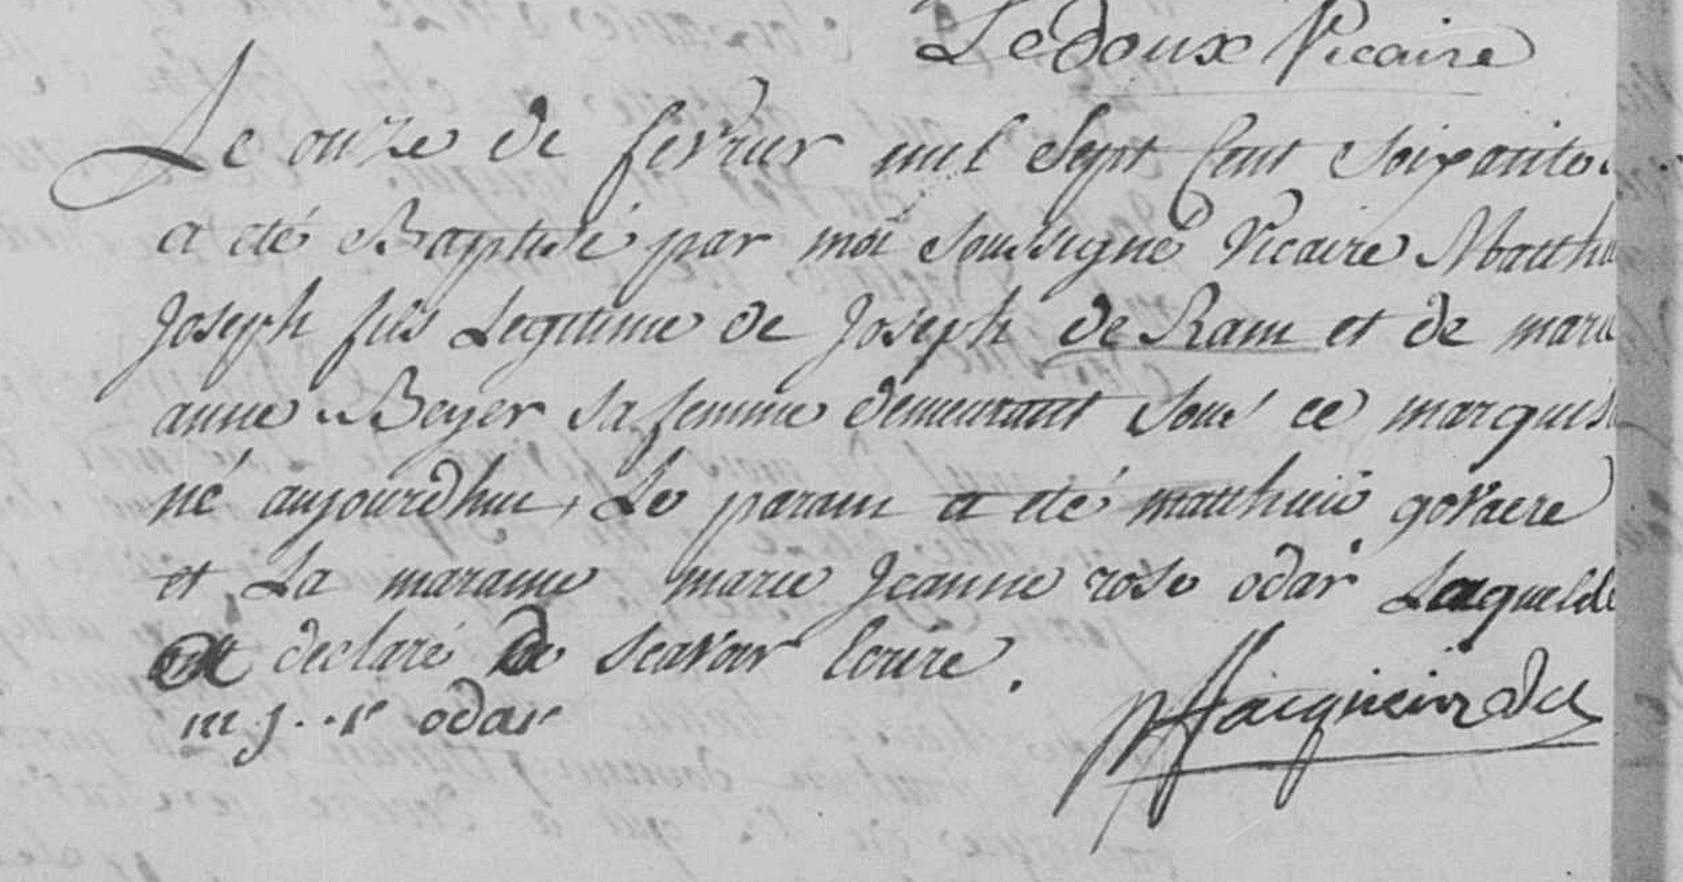 Ledoux Vicaire
Le onze de fevrier mil Sept Cent Soixante
a eté Baptisé par moi Soussigné Vicaire Matthi
Joseph fils Legitime de Joseph de Ram et de marie
anne Beyer sa femme demeurant Sous ce marquis
né aujourdhui, Le parain a eté matthieu govaere
et La maraine marie Jeanne rose odar Laquelle
declaré de scavoir Ecrire.
m j . . r odar